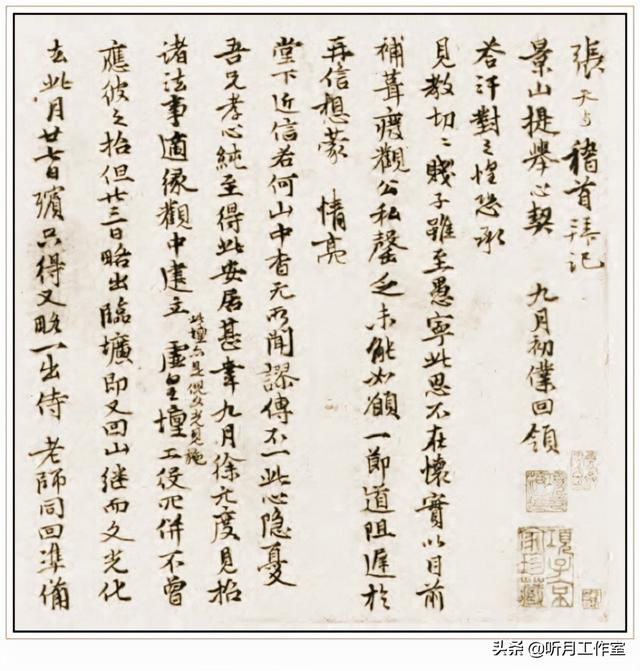 張天雨稽首拜記
景山提舉心契 九月初僕回領
答汗對之惶恐承
見教切〻賤子雖至愚寧此思不在懷實以目前
補葺廢觀公私罄乏未能如願一節道阻遲於
再信想蒙 情亮
堂下近信若何山中杳无所聞謬傳不一此心隱憂
吾兄孝心純至得此安居甚幸九月徐元度見招
諸法事適緣觀中建立 虛皇壇工役冗併不曾
此壇亦是倪文光見施
應彼之招但廿三日略出臨壙即又回山繼而文光化
去此月廿七日殯只得又略一出侍 老師同回準備
項子京家珍藏
头条 @听月工作室